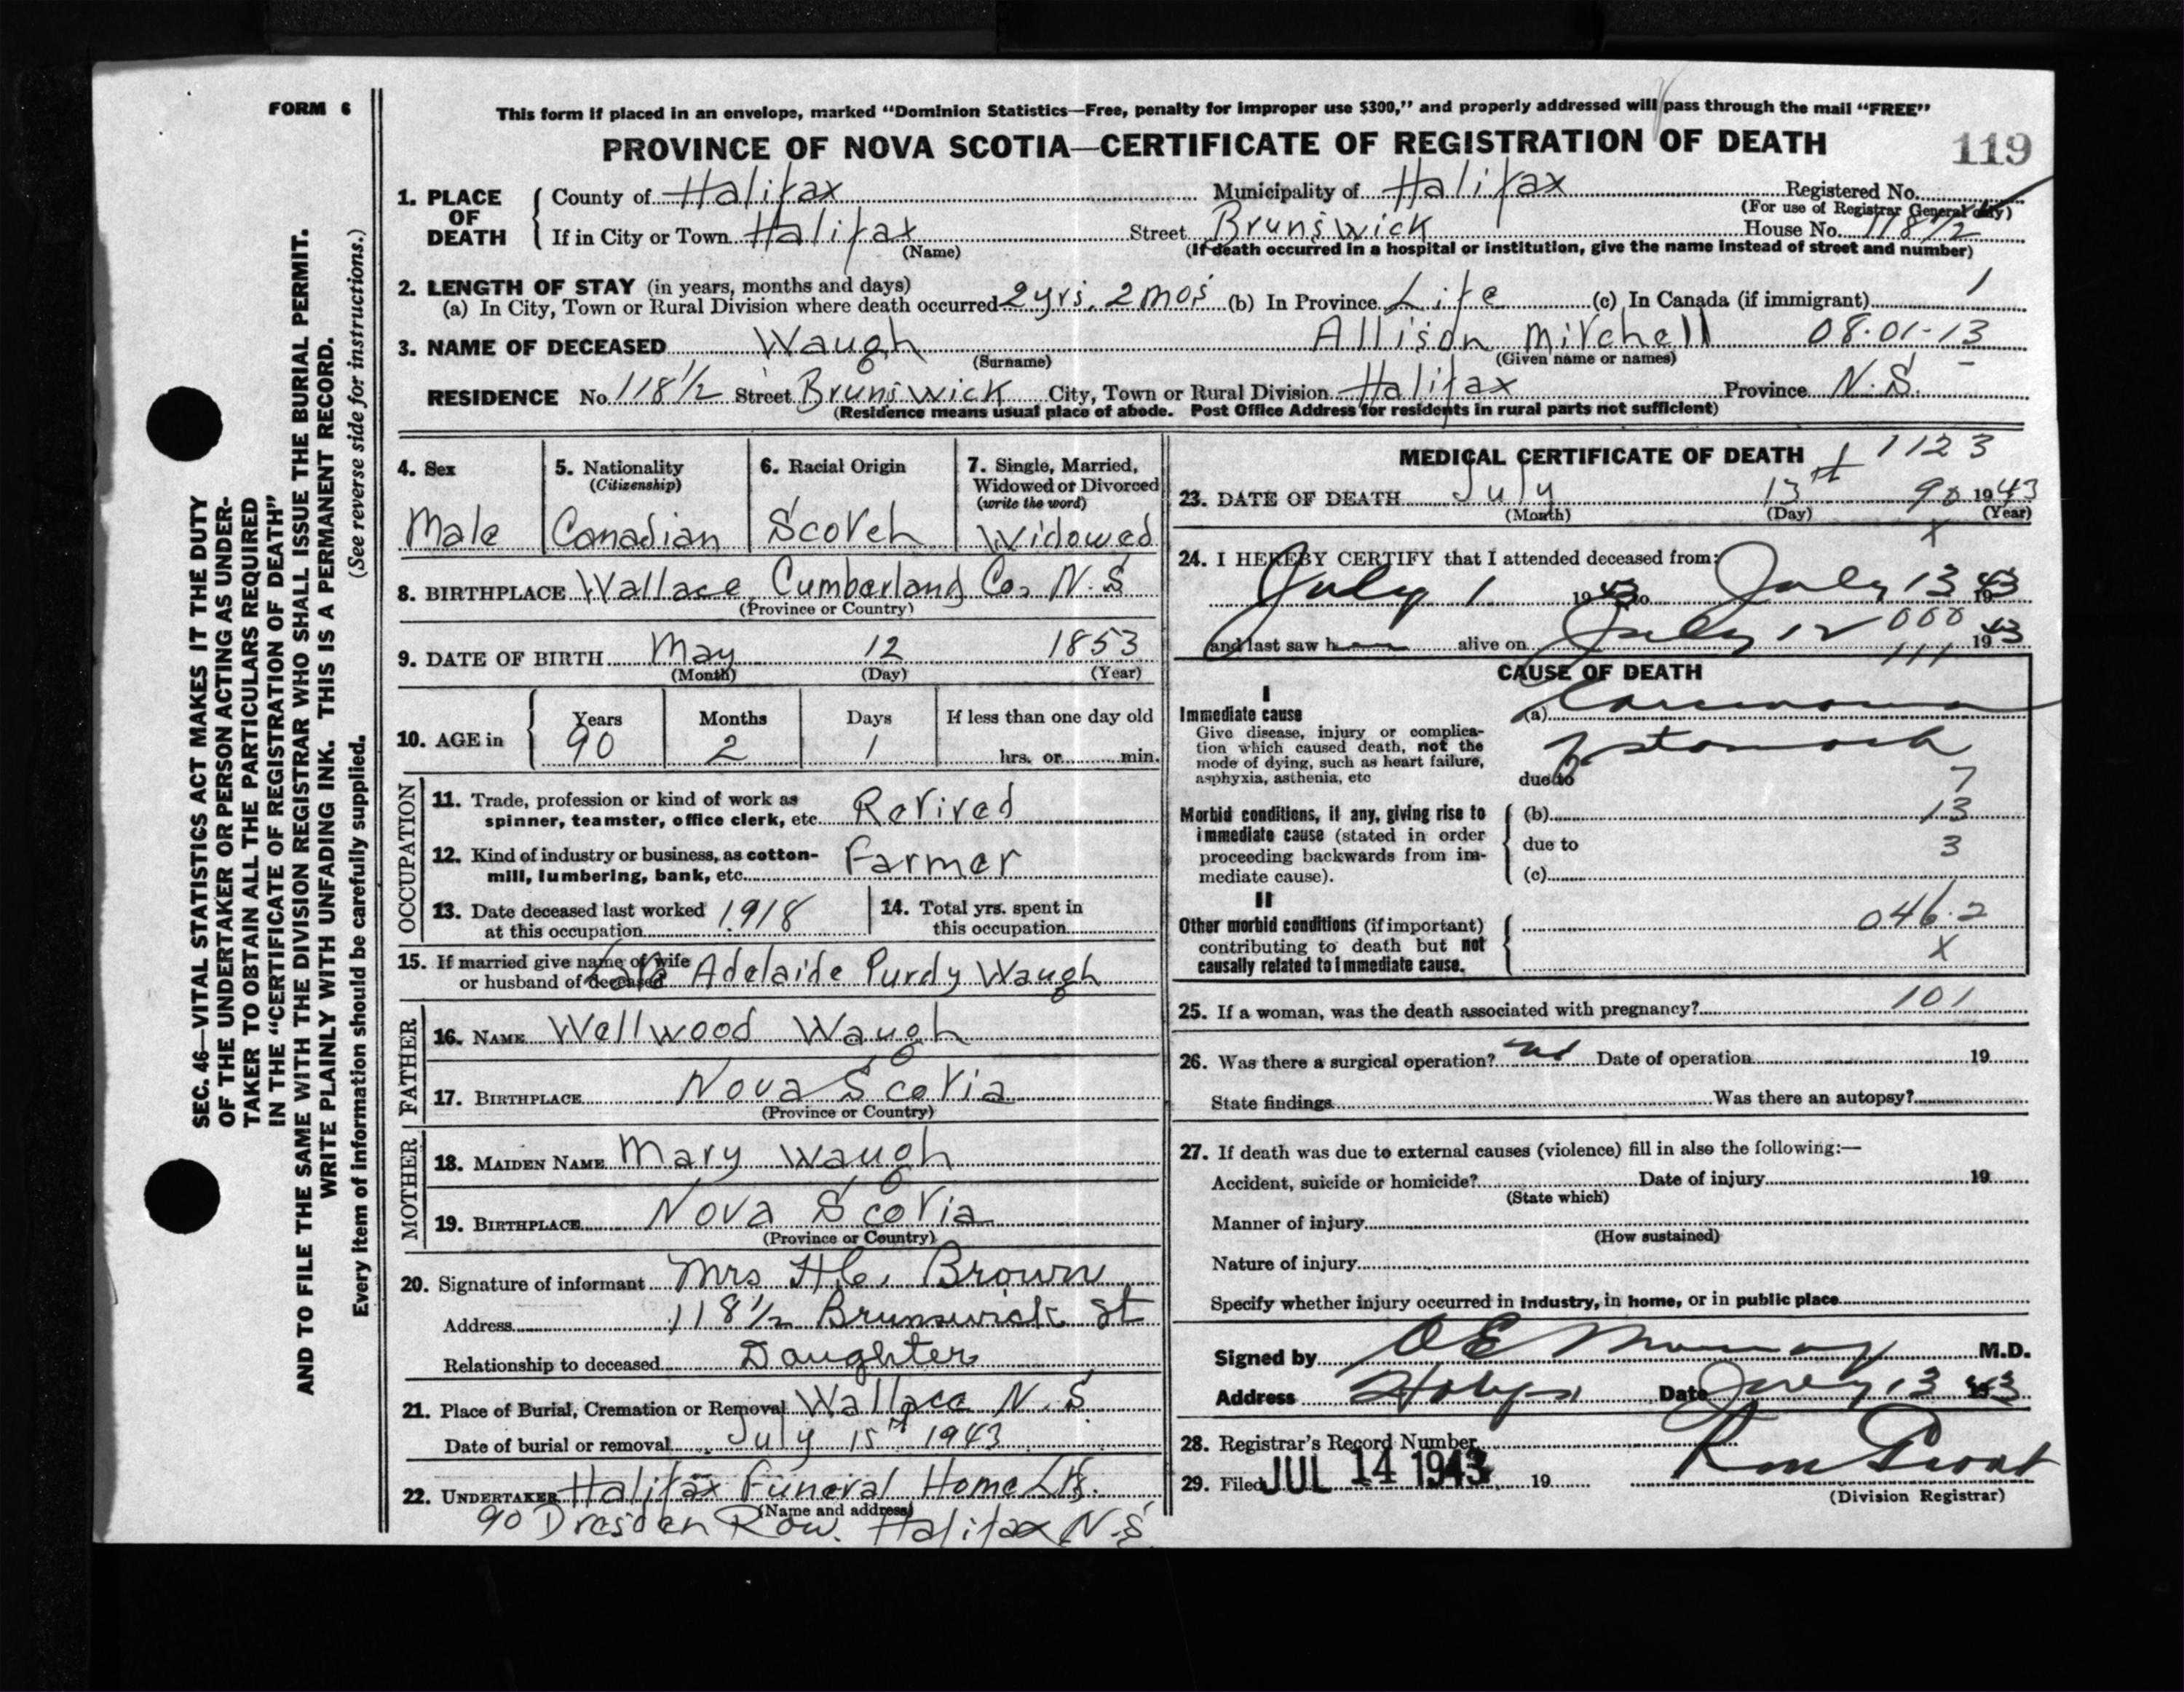 FORM 6
This form if placed in an envelope, marked "Dominion Statistics—Free, penalty for improper use $300," and properly addressed will pass through the mail "FREE"
PROVINCE OF NOVA SCOTIA—CERTIFICATE OF REGISTRATION OF DEATH
119
SEC. 46—VITAL STATISTICS ACT MAKES IT THE DUTY
OF THE UNDERTAKER OR PERSON ACTING AS UNDER-
TAKER TO OBTAIN ALL THE PARTICULARS REQUIRED
IN THE "CERTIFICATE OF REGISTRATION OF DEATH"
AND TO FILE THE SAME WITH THE DIVISION REGISTRAR WHO SHALL ISSUE THE BURIAL PERMIT.
WRITE PLAINLY WITH UNFADING INK. THIS IS A PERMANENT RECORD.
Every item of information should be carefully supplied. (See reverse side for instructions.)
1. PLACE OF DEATH
County of Halifax Municipality of Halifax Registered No.
(For use of Registrar General only)
If in City or Town Halifax Street Brunswick House No. 118 1/2
(Name) (If death occurred in a hospital or institution, give the name instead of street and number)
2. LENGTH OF STAY (in years, months and days)
(a) In City, Town or Rural Division where death occurred 2 yrs. 2 mos (b) In Province Life (c) In Canada (if immigrant) 1
3. NAME OF DECEASED Waugh Allison Mitchell 08-01-13
(Surname) (Given name or names)
RESIDENCE No. 118 1/2 Street Brunswick City, Town or Rural Division Halifax Province N.S.
(Residence means usual place of abode. Post Office Address for residents in rural parts not sufficient)
4. Sex
Male
5. Nationality
(Citizenship)
Canadian
6. Racial Origin
Scotch
7. Single, Married,
Widowed or Divorced
(write the word)
Widowed
8. BIRTHPLACE Wallace Cumberland Co, N.S
(Province or Country)
9. DATE OF BIRTH May 12 1853
(Month) (Day) (Year)
10. AGE in
Years Months Days If less than one day old
90 2 1 hrs. or min.
OCCUPATION
11. Trade, profession or kind of work as
spinner, teamster, office clerk, etc. Retired
12. Kind of industry or business, as cotton-
mill, lumbering, bank, etc. Farmer
13. Date deceased last worked
at this occupation 1918
14. Total yrs. spent in
this occupation
15. If married give name of wife
or husband of deceased Late Adelaide Purdy Waugh
FATHER
16. NAME Wellwood Waugh
17. BIRTHPLACE Nova Scotia
(Province or Country)
MOTHER
18. MAIDEN NAME Mary Waugh
19. BIRTHPLACE Nova Scotia
(Province or Country)
20. Signature of informant Mrs H.C. Brown
Address 118 1/2 Brunswick St
Relationship to deceased Daughter
21. Place of Burial, Cremation or Removal Wallace N.S
Date of burial or removal July 15th 1943
22. UNDERTAKER Halifax Funeral Home Ltd.
(Name and address)
90 Dresden Row. Halifax N.S
MEDICAL CERTIFICATE OF DEATH 1123
23. DATE OF DEATH July 13th 90 1943
(Month) (Day) (Year)
x
24. I HEREBY CERTIFY that I attended deceased from:
July 1 1943 to July 13 1943
000
and last saw h alive on July 12 1943
111
CAUSE OF DEATH
I
Immediate cause
Give disease, injury or complica-
tion which caused death, not the
mode of dying, such as heart failure,
asphyxia, asthenia, etc
(a) Carcinoma
of stomach
due to
7
Morbid conditions, if any, giving rise to
immediate cause (stated in order
proceeding backwards from im-
mediate cause).
(b) 13
due to 3
(c)
II
Other morbid conditions (if important)
contributing to death but not
causally related to immediate cause.
046.2
X
25. If a woman, was the death associated with pregnancy? 101
26. Was there a surgical operation? no Date of operation 19
State findings Was there an autopsy?
27. If death was due to external causes (violence) fill in also the following:—
Accident, suicide or homicide? Date of injury 19
(State which)
Manner of injury
(How sustained)
Nature of injury
Specify whether injury occurred in industry, in home, or in public place
Signed by M.D.
Address Date July 13 1943
28. Registrar's Record Number
29. Filed JUL 14 1943 19
(Division Registrar)